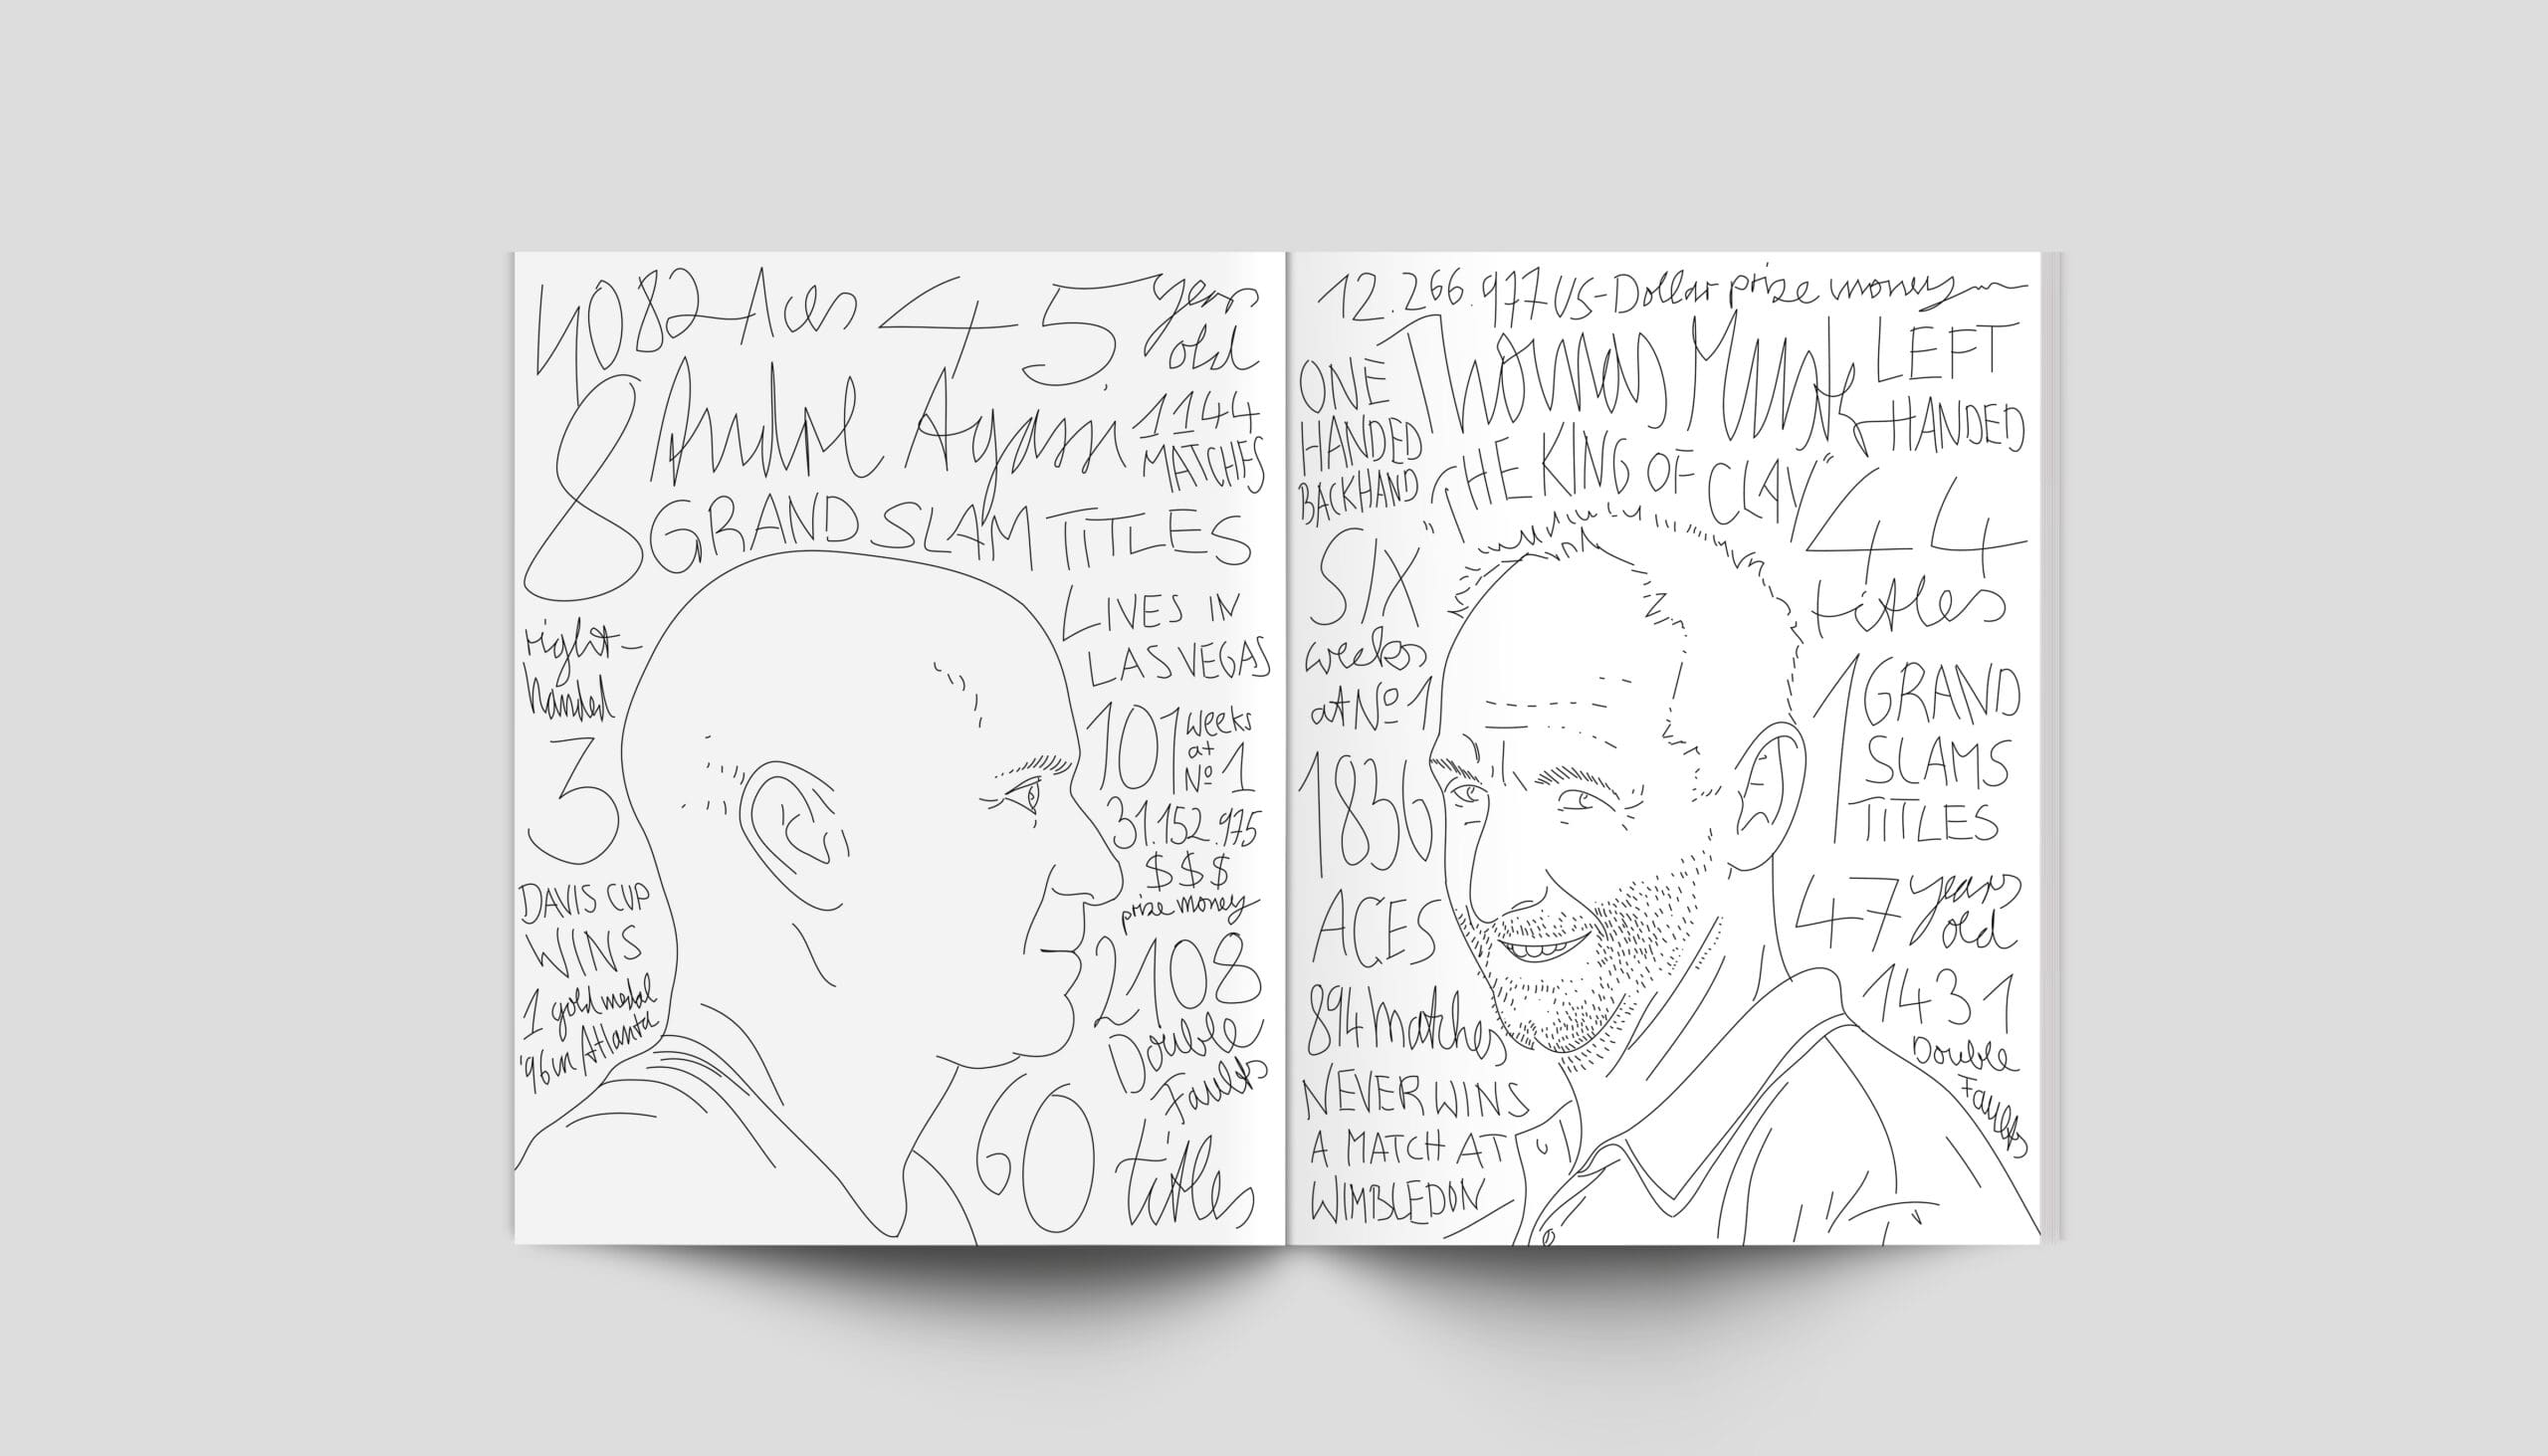 4082 Aces
45 years
old
8 André Agassi
1144
MATCHES
GRAND SLAM TITLES
right-
handed
3
DAVIS CUP
WINS
1 gold medal
'96 in Atlanta
LIVES IN
LAS VEGAS
101 weeks
at
Nº 1
31.152.975
$$$
prize money
2108
Double
Faults
60 titles
12.266.977 US-Dollar prize money
ONE
HANDED
BACKHAND
Thomas Muster
LEFT
HANDED
"THE KING OF CLAY"
SIX
weeks
at Nº 1
1836
ACES
894 Matches
NEVER WINS
A MATCH AT
WIMBLEDON
44
titles
1 GRAND
SLAMS
TITLES
47 years
old
1431
Double
Faults